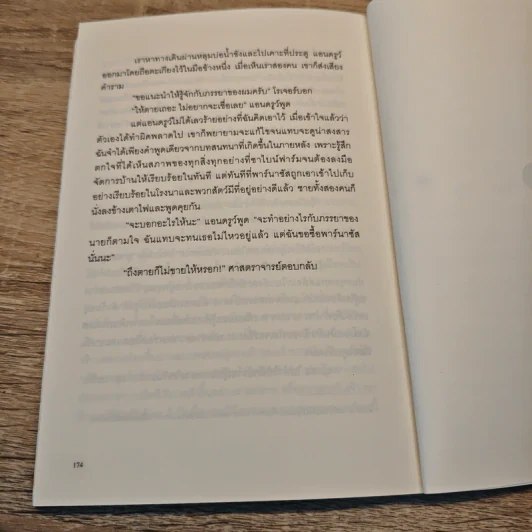 เราหาทางเดินผ่านหลุมบ่อน้ำขังและไปเคาะที่ประตู แอนดรูว์
ออกมาโดยถือตะเกียงไว้ในมือข้างหนึ่ง เมื่อเห็นเราสองคน เขาก็ส่งเสียง
คำราม
“ขอแนะนำให้รู้จักกับภรรยาของผมครับ” โรเจอร์บอก
“ให้ตายเถอะ ไม่อยากจะเชื่อเลย” แอนดรูว์พูด
แต่แอนดรูว์ไม่ได้เลวร้ายอย่างที่ฉันคิดเอาไว้ เมื่อเข้าใจแล้วว่า
ตัวเองได้ทำผิดพลาดไป เขาก็พยายามจะแก้ไขจนแทบจะดูน่าสงสาร
ฉันจำได้เพียงคำพูดเดียวจากบทสนทนาที่เกิดขึ้นในภายหลัง เพราะรู้สึก
ตกใจที่ได้เห็นสภาพของทุกสิ่งทุกอย่างที่ซาไบน์ฟาร์มจนต้องลงมือ
จัดการบ้านให้เรียบร้อยในทันที แต่ทันทีที่พาร์นาซัสถูกเอาเข้าไปเก็บ
อย่างเรียบร้อยในโรงนาและพวกสัตว์มีที่อยู่อย่างดีแล้ว ชายทั้งสองคนก็
นั่งลงข้างเตาไฟและพูดคุยกัน
“จะบอกอะไรให้นะ” แอนดรูว์พูด “จะทำอย่างไรกับภรรยาของ
นายก็ตามใจ ฉันแทบจะทนเธอไม่ไหวอยู่แล้ว แต่ฉันขอซื้อพาร์นาซัส
นั่นนะ”
“ถึงตายก็ไม่ขายให้หรอก!” ศาสตราจารย์ตอบกลับ
174